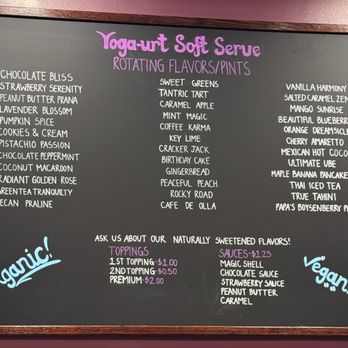 Yoga-urt Soft Serve
ROTATING FLAVORS/PINTS
CHOCOLATE BLISS
STRAWBERRY SERENITY
PEANUT BUTTER PRANA
LAVENDER BLOSSOM
PUMPKIN SPICE
COOKIES & CREAM
PISTACHIO PASSION
CHOCOLATE PEPPERMINT
COCONUT MACAROON
RADIANT GOLDEN ROSE
GREEN TEA TRANQUILTY
PECAN PRALINE
SWEET GREENS
TANTRIC TART
CARAMEL APPLE
MINT MAGIC
COFFEE KARMA
KEY LIME
CRACKER JACK
BIRTHDAY CAKE
GINGERBREAD
PEACEFUL PEACH
ROCKY ROAD
CAFE DE OLLA
VANILLA HARMONY
SALTED CARAMEL ZEN
MANGO SUNRISE
BEAUTIFUL BLUEBERR
ORANGE DREAMSICL
CHERRY AMARETTO
MEXICAN HOT COCO
ULTIMATE UBE
MAPLE BANANA PANCAKE
THAI ICED TEA
TRUE TAHINI
PAPA'S BOYSENBERRY P
ASK US ABOUT OUR NATURALLY SWEETENED FLAVORS!
TOPPINGS
1ST TOPPING-$1.00
2ND TOPPING-$0.50
PREMIUM-$2.00
SAUCES-$1.25
MAGIC SHELL
CHOCOLATE SAUCE
STRAWBERRY SAUCE
PEANUT BUTTER
CARAMEL
rganic!
Vegan